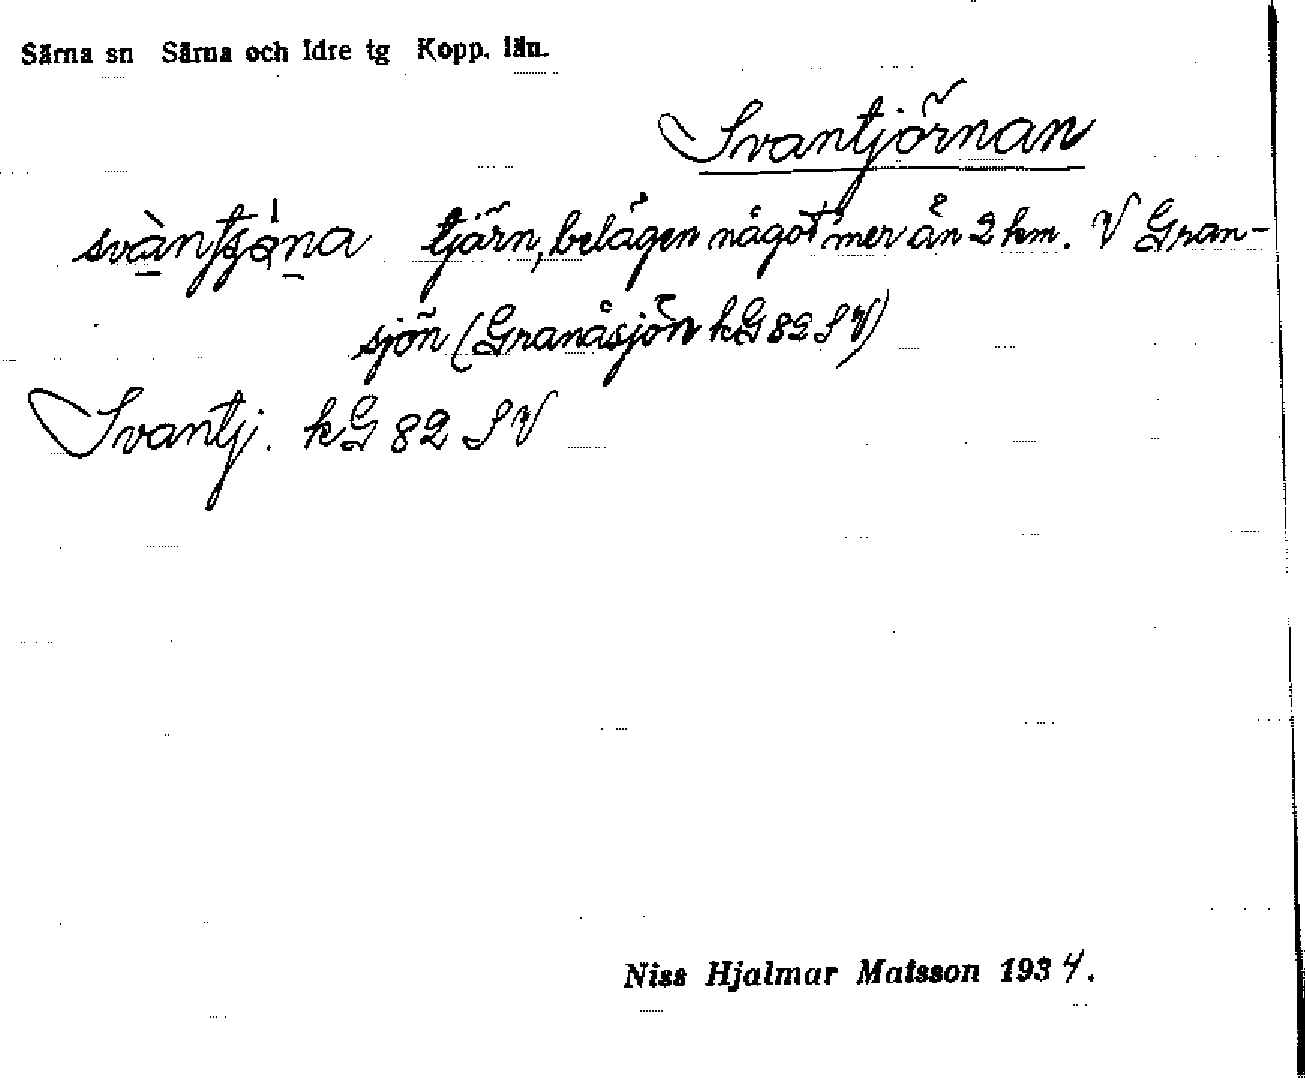 Särna sn Särna och Idre tg Kopp. län.
Svantjörnan
tjärn, belägen något mer än 2 km. V Gran-
sjön (Granåsjön kG 82 SV)
Svantj. kG 82 SV
Niss Hjalmar Matsson 1934.